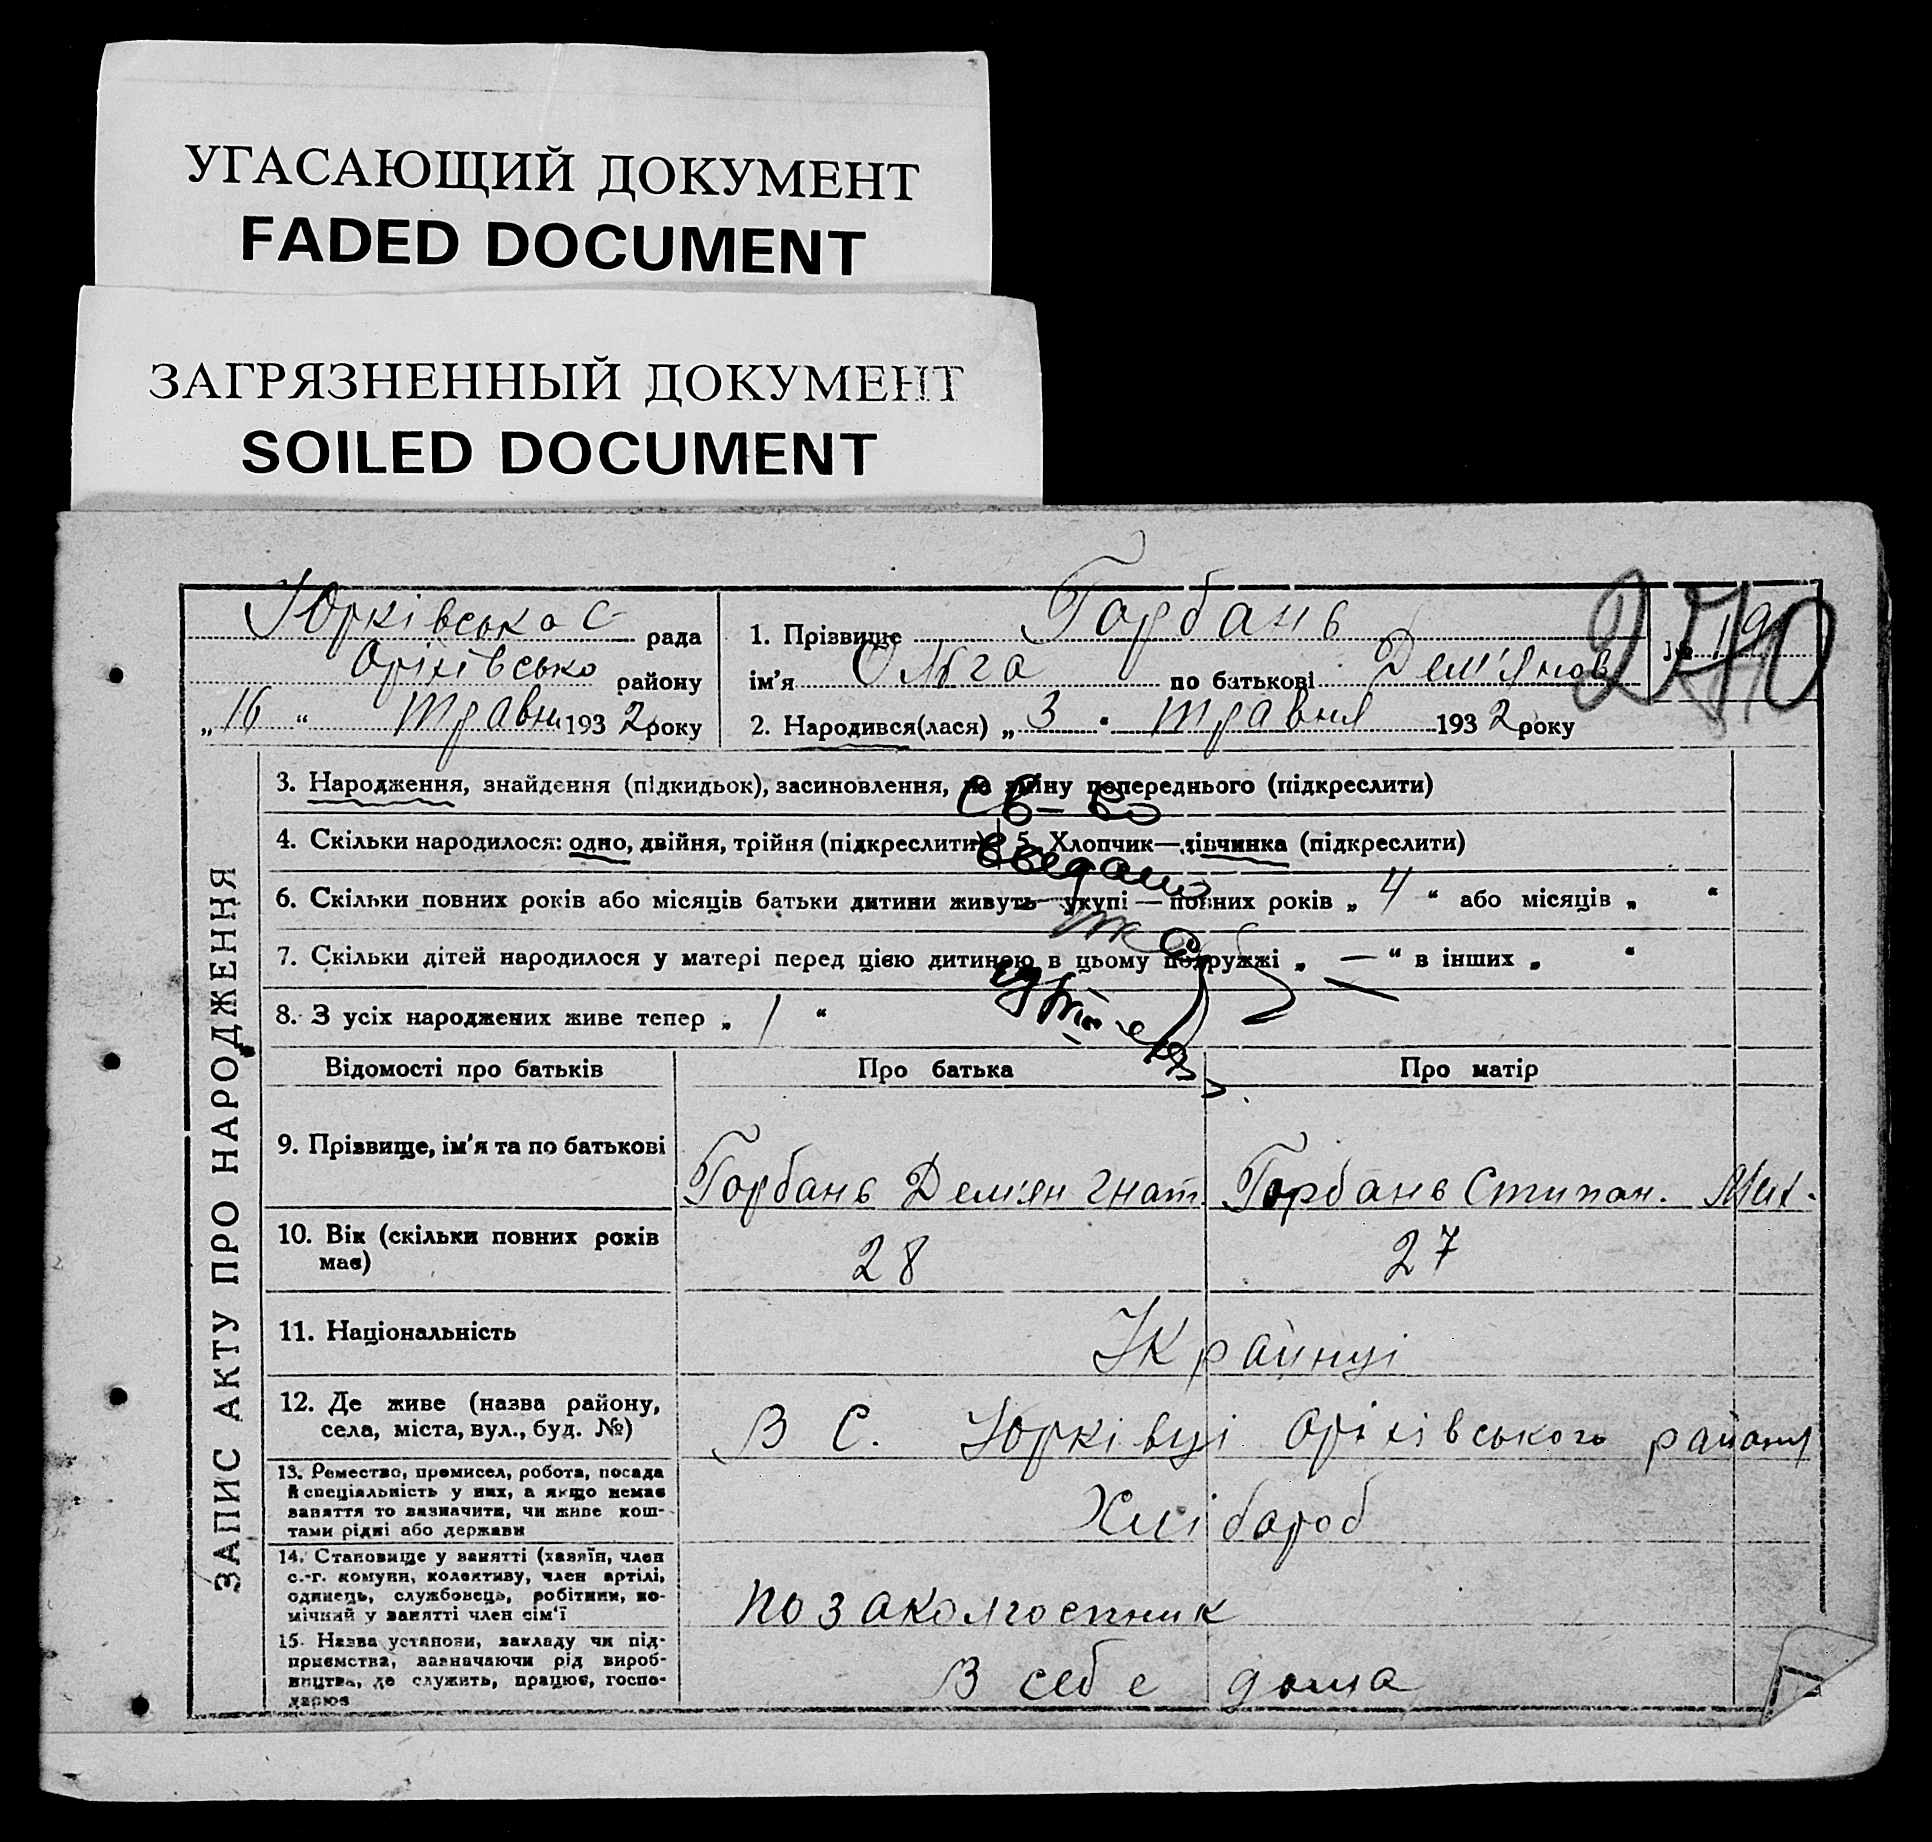 УГАСАЮЩИЙ ДОКУМЕНТ
FADED DOCUMENT
ЗАГРЯЗНЕННЫЙ ДОКУМЕНТ
SOILED DOCUMENT
Юрківська С рада
Оріхівсько району
„16“ травня 1932 року
1. Прізвище Горбань
ім'я Ольга по батькові Дем'янов
2. Народився(лася) „3" травня 1932 року
№ 19
ЗАПИС АКТУ ПРО НАРОДЖЕННЯ
3. Народження, знайдення (підкидьок), засиновлення, на зміну попереднього (підкреслити)
св-во
4. Скільки народилося: одно, двійня, трійня (підкреслити) 5. Хлопчик—дівчинка (підкреслити)
6. Скільки повних років або місяців батьки дитини живуть укупі — повних років „ 4 “ або місяців „ “
7. Скільки дітей народилося у матері перед цією дитиною в цьому подружжі „ — “ в інших „ “
8. З усіх народжених живе тепер „ 1 “
Відомості про батьків Про батька Про матір
9. Прізвище, ім'я та по батькові Горбань Дем'ян Гнат. Горбань Степан. Мих.
10. Вік (скільки повних років має) 28 27
11. Національність Українці
12. Де живе (назва району, села, міста, вул., буд. №) В С. Юрківці Оріхівського району
13. Ремество, промисел, робота, посада
й спеціальність у них, а якщо немає
заняття то вазначити, чи живе кош-
тами рідні або держави
Хлібороб
14. Становище у занятті (хазяїн, член
с.-г. комуни, колективу, член артілі,
одинець, службовець, робітник, по-
мічний у занятті член сім'ї
позаколгоспник
15. Назва установи, закладу чи під-
приємства, зазначаючи рід вироб-
ництва, де служить, працює, госпо-
дарює
В себе дома